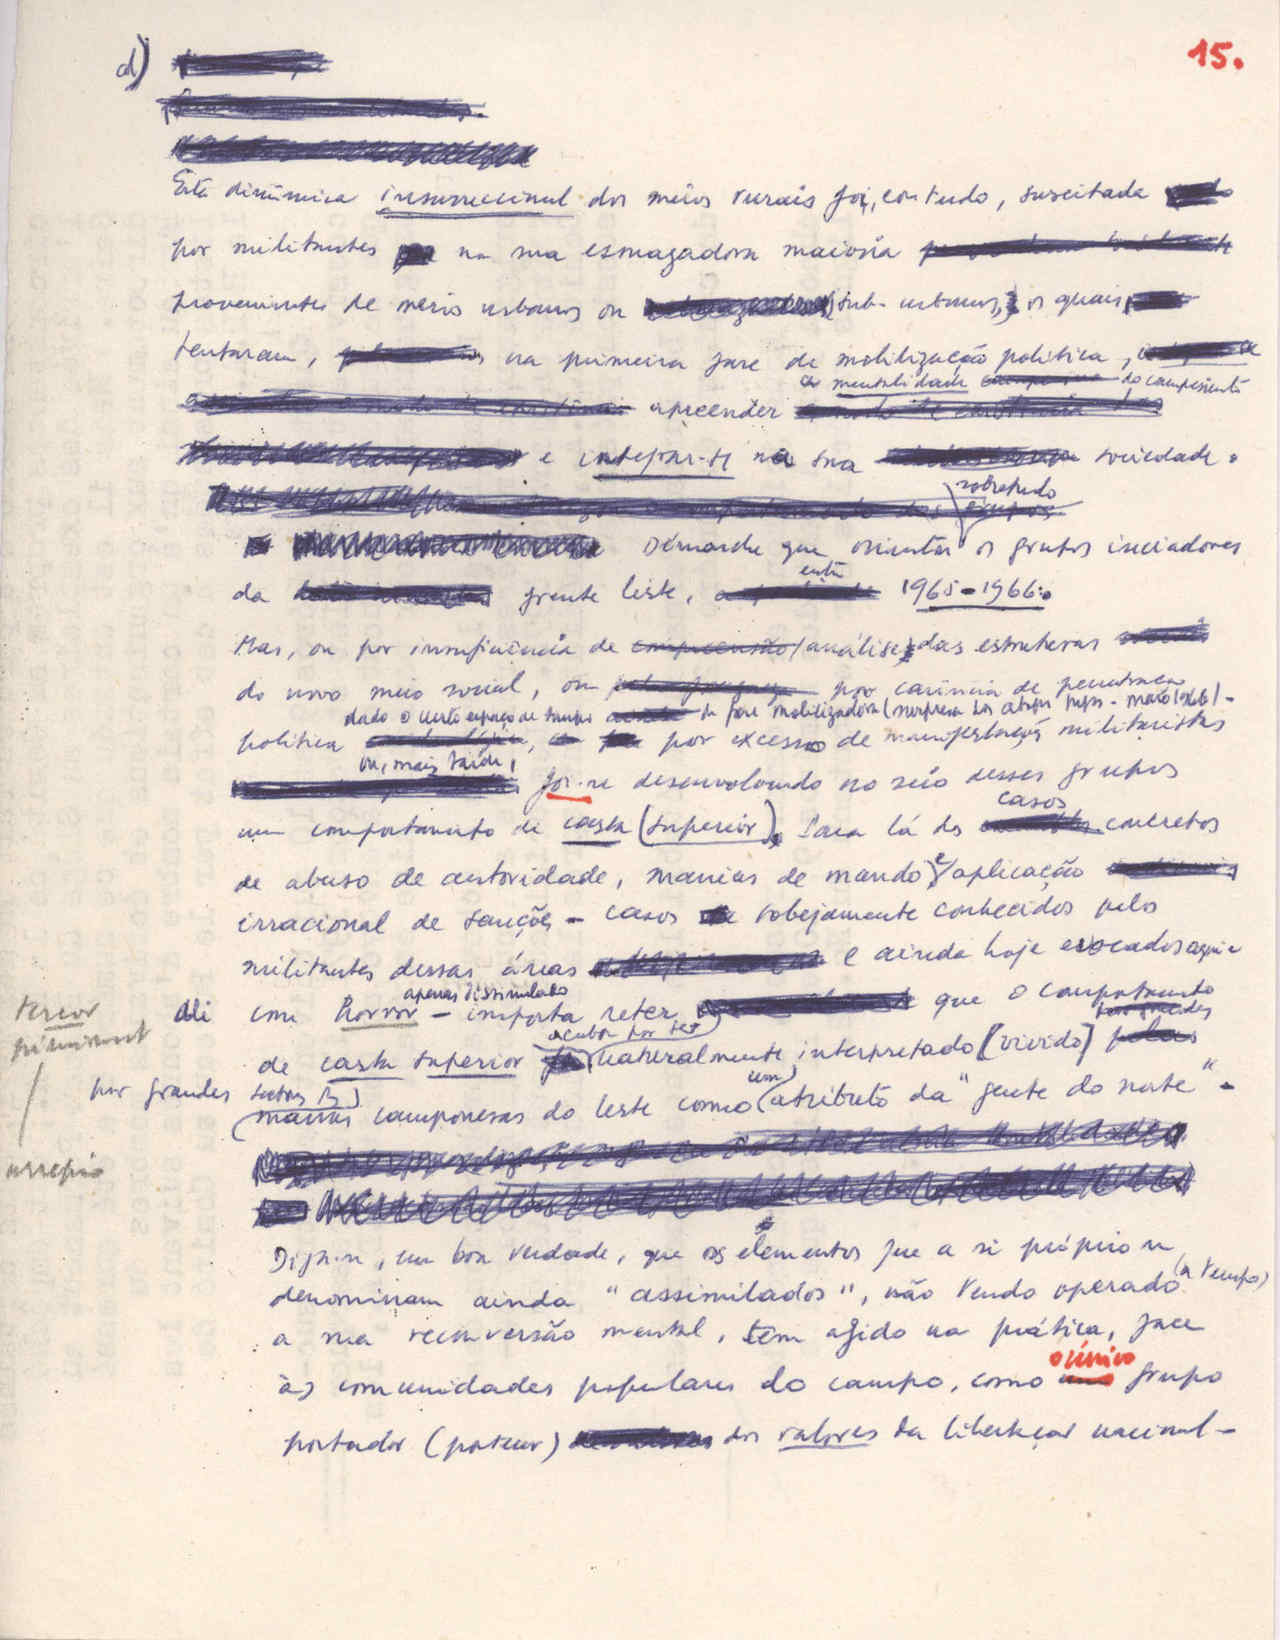 15.
d)
Esta dinâmica insurreccional dos meios rurais foi, contudo, suscitada
por militantes na sua esmagadora maioria
provenientes de meios urbanos ou (sub-urbanos,) os quais,
tentaram, na primeira fase de mobilização política,
a mentalidade do campesinato
apreender
e integrar-se na sua sociedade.
sobretudo
Démarche que orienta os grupos iniciadores
da frente leste, entre 1965-1966.
Mas, ou por insuficiência de compreensão (análise) das estruturas
do novo meio social, ou por carência de
dado o curto espaço de tempo da fase mobilizadora (
política por excesso de manifestações militaristas
ou, mais tarde,
foi-se desenvolvendo no seio desses grupos
um comportamento de casta (superior). Para lá dos casos concretos
de abuso de autoridade, manias de mando e aplicação
irracional de sanções - casos sobejamente conhecidos pelos
militantes dessas áreas e ainda hoje evocados aqui e
ali com horror apenas dissimulado - importa reter que o comportamento
terror
de casta superior acabou por ser naturalmente interpretado [vivido] pelas
por grandes
massas camponesas do leste como (um) atributo da "gente do norte" -
arrepio
Diga-se, em boa verdade, que os elementos que a si próprio se
denominam ainda "assimilados", não tendo operado (a tempo)
a sua reconversão mental, têm agido na prática, face
às comunidades populares do campo, como o único grupo
portador (porteur) dos valores da libertação nacional-